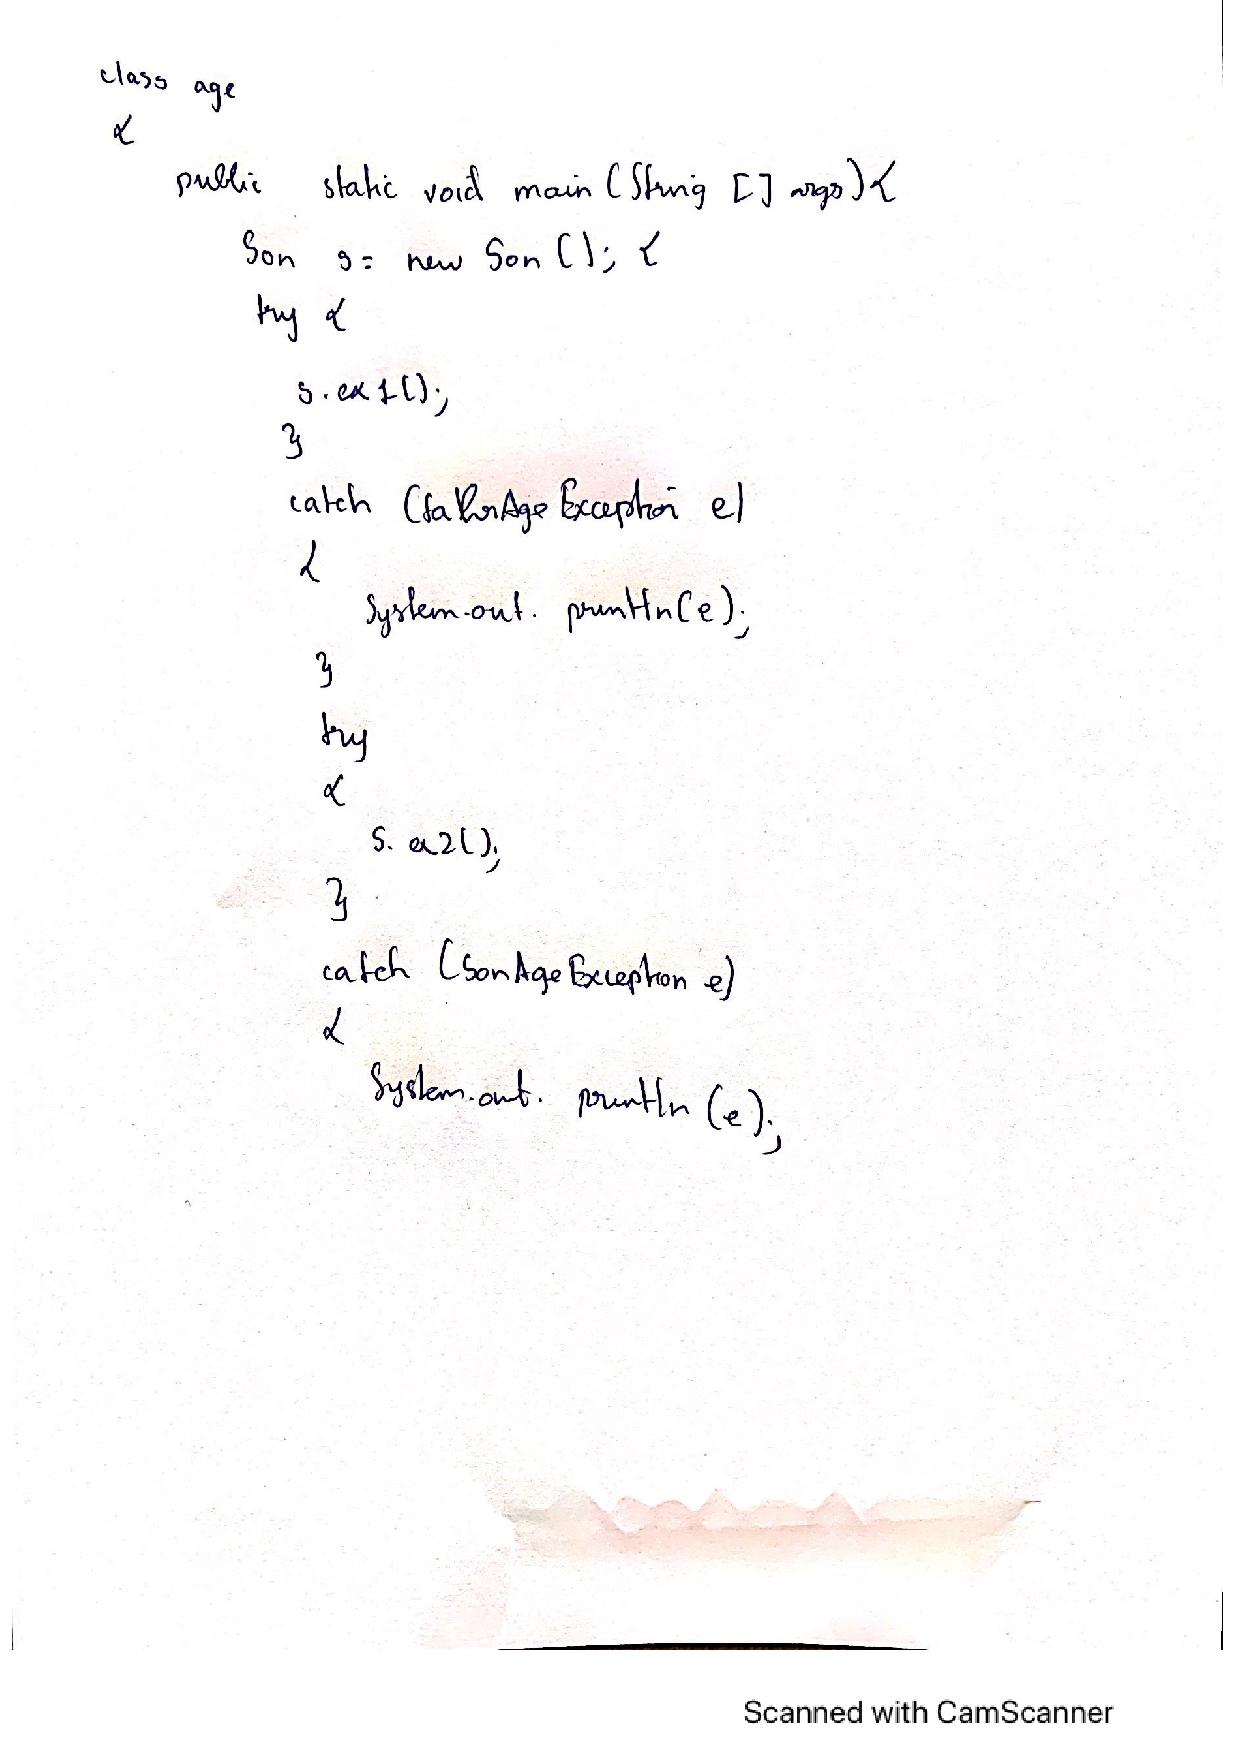 class age
{
public static void main (String [] args) {
Son s = new Son (); {
try {
s.ex1();
}
catch (fatherAge Exception e)
{
System.out. println(e);
}
try
{
s. ex2();
}
catch (SonAge Exception e)
{
System.out. println (e);
Scanned with CamScanner